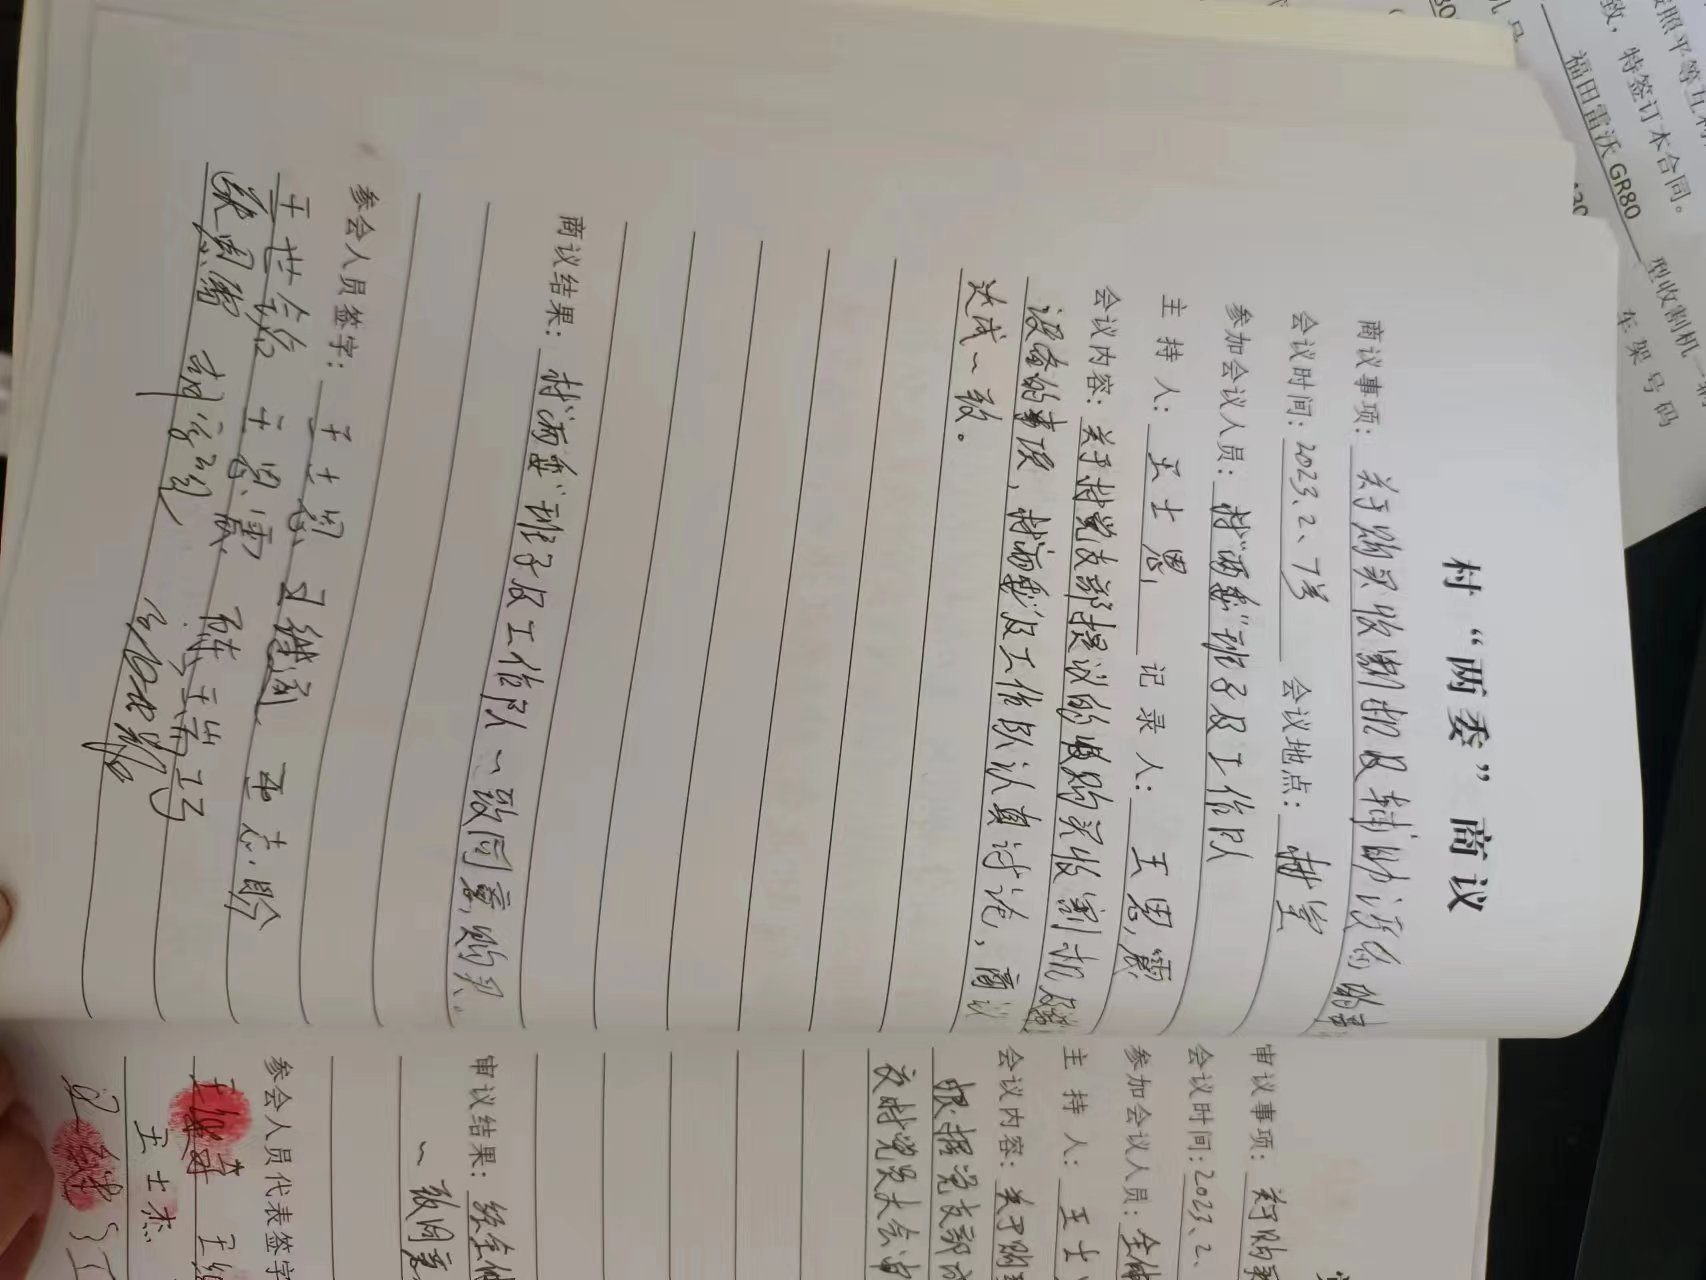 按照平等互利
致，特签订本合同。
福田雷沃 GR80 型收割机一辆
车架号码
机号
村“两委”商议
商议事项：关于购买收割机及辅助设备的事
会议时间：2023、2、7号 会议地点：村室
参加会议人员：村“两委”班子及工作队
主持人：王士恩 记录人：王恩震
会议内容：关于村党支部提议的购买收割机及
设备的事项，村“两委”及工作队认真讨论，商议
达成一致。
商议结果：村“两委”班子及工作队一致同意购买。
参会人员签字：王士恩 王继通 王志盼
王世铭 王恩震 陈瑞巧
审议事项：关于购买
会议时间：2023、2、
参加会议人员：全体
主持人：王士
会议内容：关于购买
根据党支部成
交村党员大会审
审议结果：经全体
一致同意
参会人员代表签字
王士杰
王继江